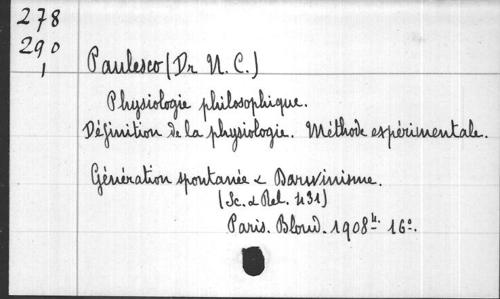 278
290
1
Paulesco (Dr N. C.)
Physiologie philosophique.
Définition de la physiologie. Méthode expérimentale.
Génération spontanée & Darwinisme.
(Sc. & Rel. 431)
Paris. Bloud. 1908 16°.